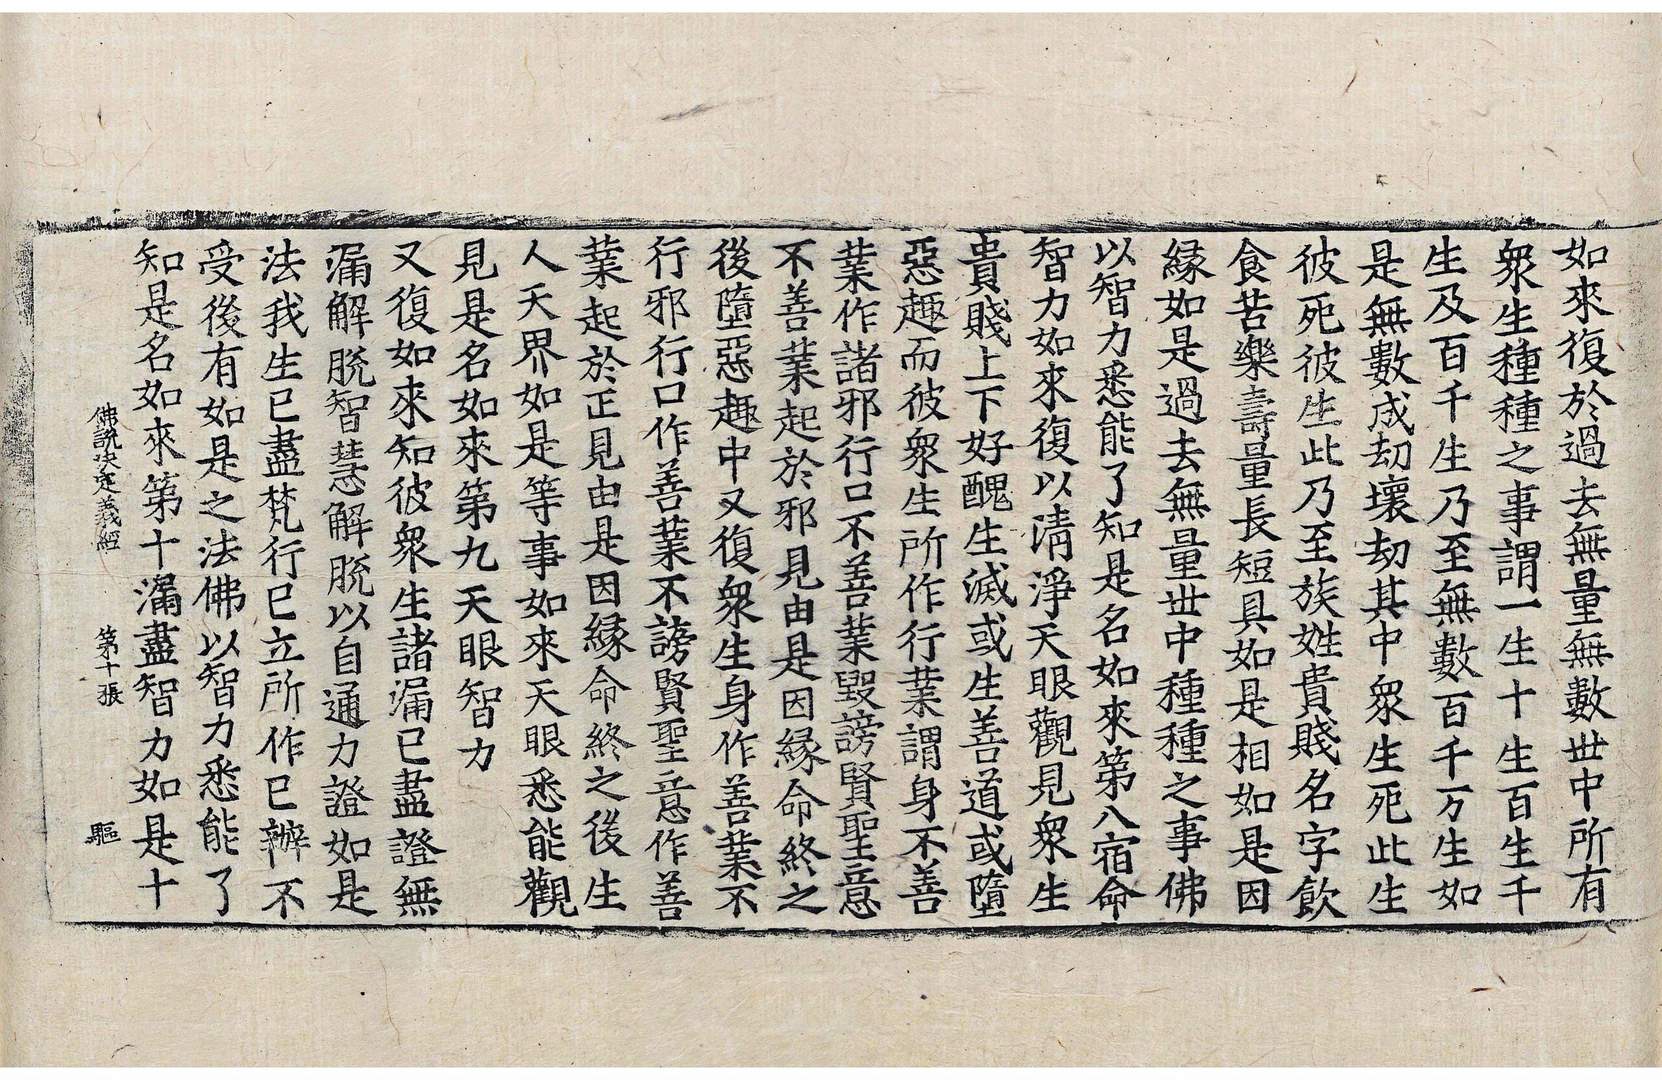 如來復於過去無量無數世中所有
衆生種種之事謂一生十生百生千
生及百千生乃至無數百千万生如
是無數成劫壞劫其中衆生死此生
彼死彼生此乃至族姓貴賤名字飲
食苦樂壽量長短具如是相如是因
縁如是過去無量世中種種之事佛
以智力悉能了知是名如來第八宿命
智力如來復以清淨天眼觀見衆生
貴賤上下好醜生滅或生善道或墮
惡趣而彼衆生所作行業謂身不善
業作諸邪行口不善業毀謗賢聖意
不善業起於邪見由是因縁命終之
後墮惡趣中又復衆生身作善業不
行邪行口作善業不謗賢聖意作善
業起於正見由是因縁命終之後生
人天界如是等事如來天眼悉能觀
見是名如來第九天眼智力
又復如來知彼衆生諸漏已盡證無
漏解脫智慧解脫以自通力證如是
法我生已盡梵行已立所作已辦不
受後有如是之法佛以智力悉能了
知是名如來第十漏盡智力如是十
佛說决定義經 第十張 驅